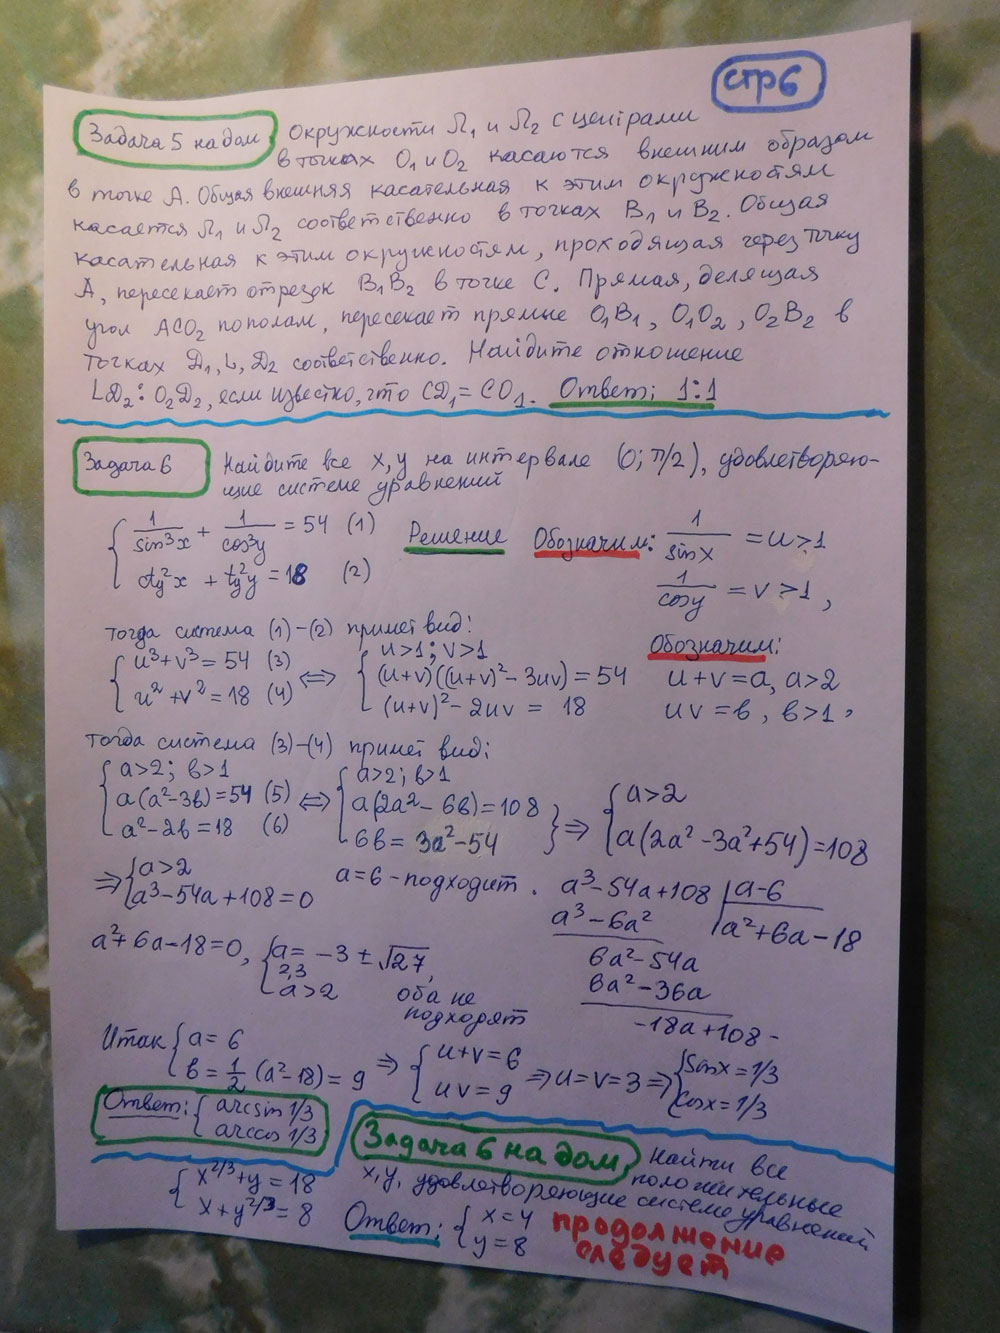 стр 6
Задача 5 на дом Окружности Ω₁ и Ω₂ с центрами
в точках O₁ и O₂ касаются внешним образом
в точке А. Общая внешняя касательная к этим окружностям
касается Ω₁ и Ω₂ соответственно в точках B₁ и B₂. Общая
касательная к этим окружностям, проходящая через точку
А, пересекает отрезок B₁B₂ в точке C. Прямая, делящая
угол ACO₂ пополам, пересекает прямые O₁B₁, O₁O₂, O₂B₂ в
точках D₁, L, D₂ соответственно. Найдите отношение
LD₂ : O₂D₂, если известно, что CD₁ = CO₁. Ответ: 1:1
Задача 6 Найдите все x, y на интервале (0; π/2), удовлетворяю-
щие системе уравнений
{ 1/sin³x + 1/cos³y = 54 (1)
ctg²x + tg²y = 18 (2)
Решение Обозначим: 1/sinx = u > 1
1/cosy = v > 1,
тогда система (1)-(2) примет вид:
{ u³+v³ = 54 (3)
u²+v² = 18 (4)
⇔ { u>1; v>1
(u+v)((u+v)²-3uv) = 54
(u+v)²-2uv = 18
Обозначим:
u+v=a, a>2
uv = b, b>1,
тогда система (3)-(4) примет вид:
{ a>2; b>1
a(a²-3b)=54 (5)
a²-2b=18 (6)
⇔ { a>2; b>1
a(2a²-6b)=108
6b = 3a²-54 }
⇒ { a>2
a(2a²-3a²+54)=108
⇒ { a>2
a³-54a+108=0
a=6 - подходит.
a³-54a+108 | a-6
a³-6a² | a²+6a-18
6a²-54a
6a²-36a
-18a+108-
a²+6a-18=0, { a₂,₃ = -3 ± √27,
a>2
оба не
подходят
Итак { a=6
b = 1/2 (a²-18) = 9
⇒ { u+v=6
uv=9
⇒ u=v=3 ⇒ { sinx = 1/3
cosx = 1/3
Ответ: { arcsin 1/3
arccos 1/3
Задача 6 на дом Найти все
положительные
x, y, удовлетворяющие системе уравнений
{ x^2/3+y = 18
x+y^2/3 = 8
Ответ: { x=4
y=8
продолжение
следует